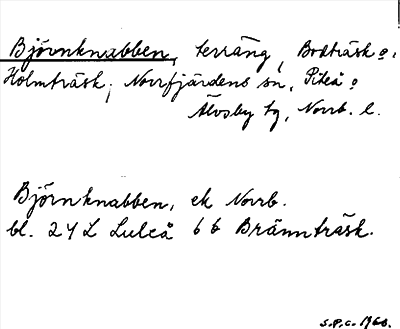 Björnknabben, terräng, Brodträsk o.
Holmträsk, Norrfjärdens sn, Piteå o
Älvsby tg, Norrb. l.
Björnknabben, ek Norrb.
bl. 24 L Luleå 6 b Brännträsk.
S.P.C. 1968.